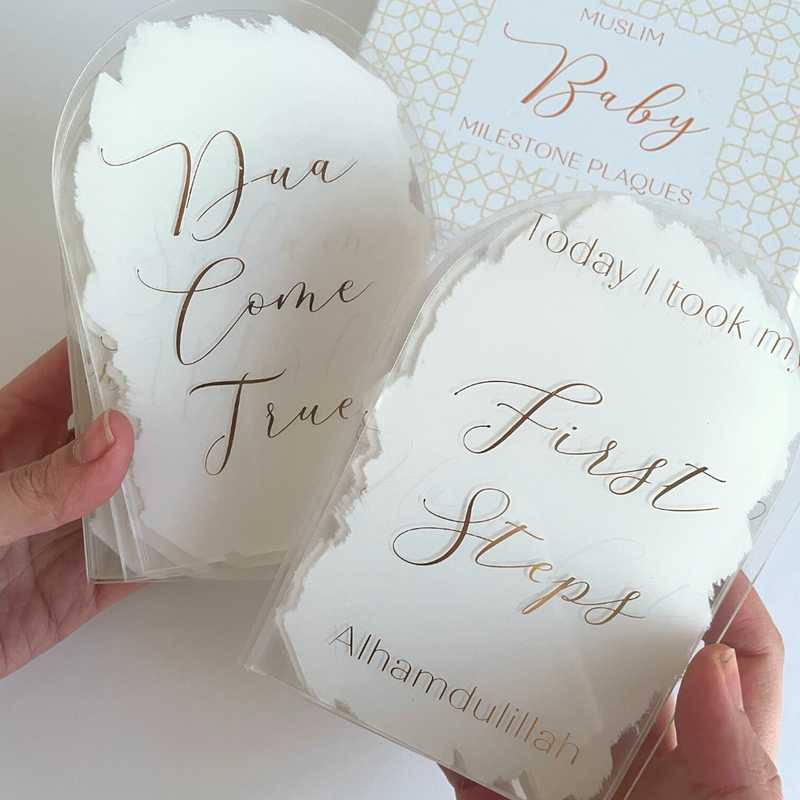 MUSLIM
Baby
MILESTONE PLAQUES
Dua
Come
True
Today I took my
First
Steps
Alhamdulillah